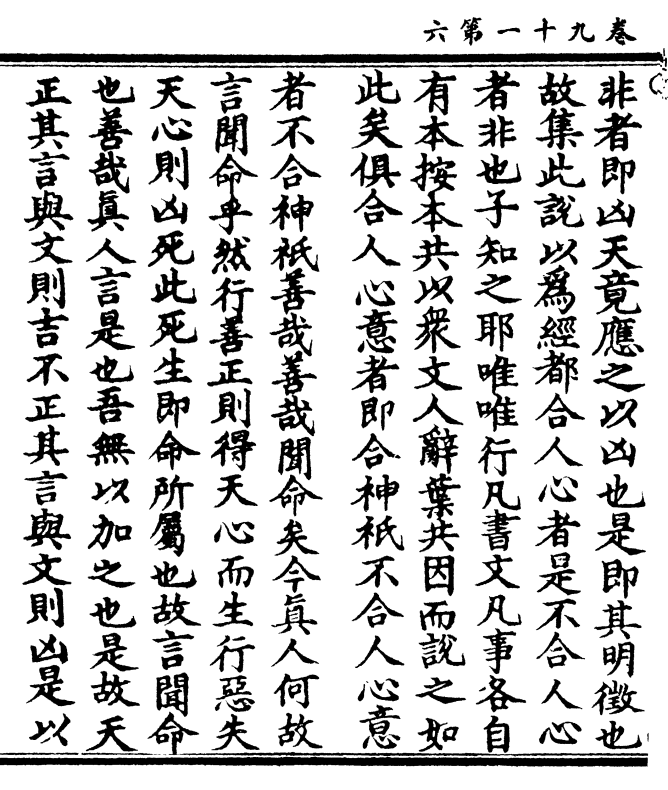 卷九十一第六
非者即凶天竟應之以凶也是即其明徵也
故集此說以爲經都合人心者是不合人心
者非也子知之耶唯唯行凡書文凡事各自
有本按本共以衆文人辭葉共因而說之如
此矣俱合人心意者即合神祇不合人心意
者不合神祇善哉善哉聞命矣今眞人何故
言聞命乎然行善正則得天心而生行惡失
天心則凶死此死生即命所屬也故言聞命
也善哉眞人言是也吾無以加之也是故天
正其言與文則吉不正其言與文則凶是以